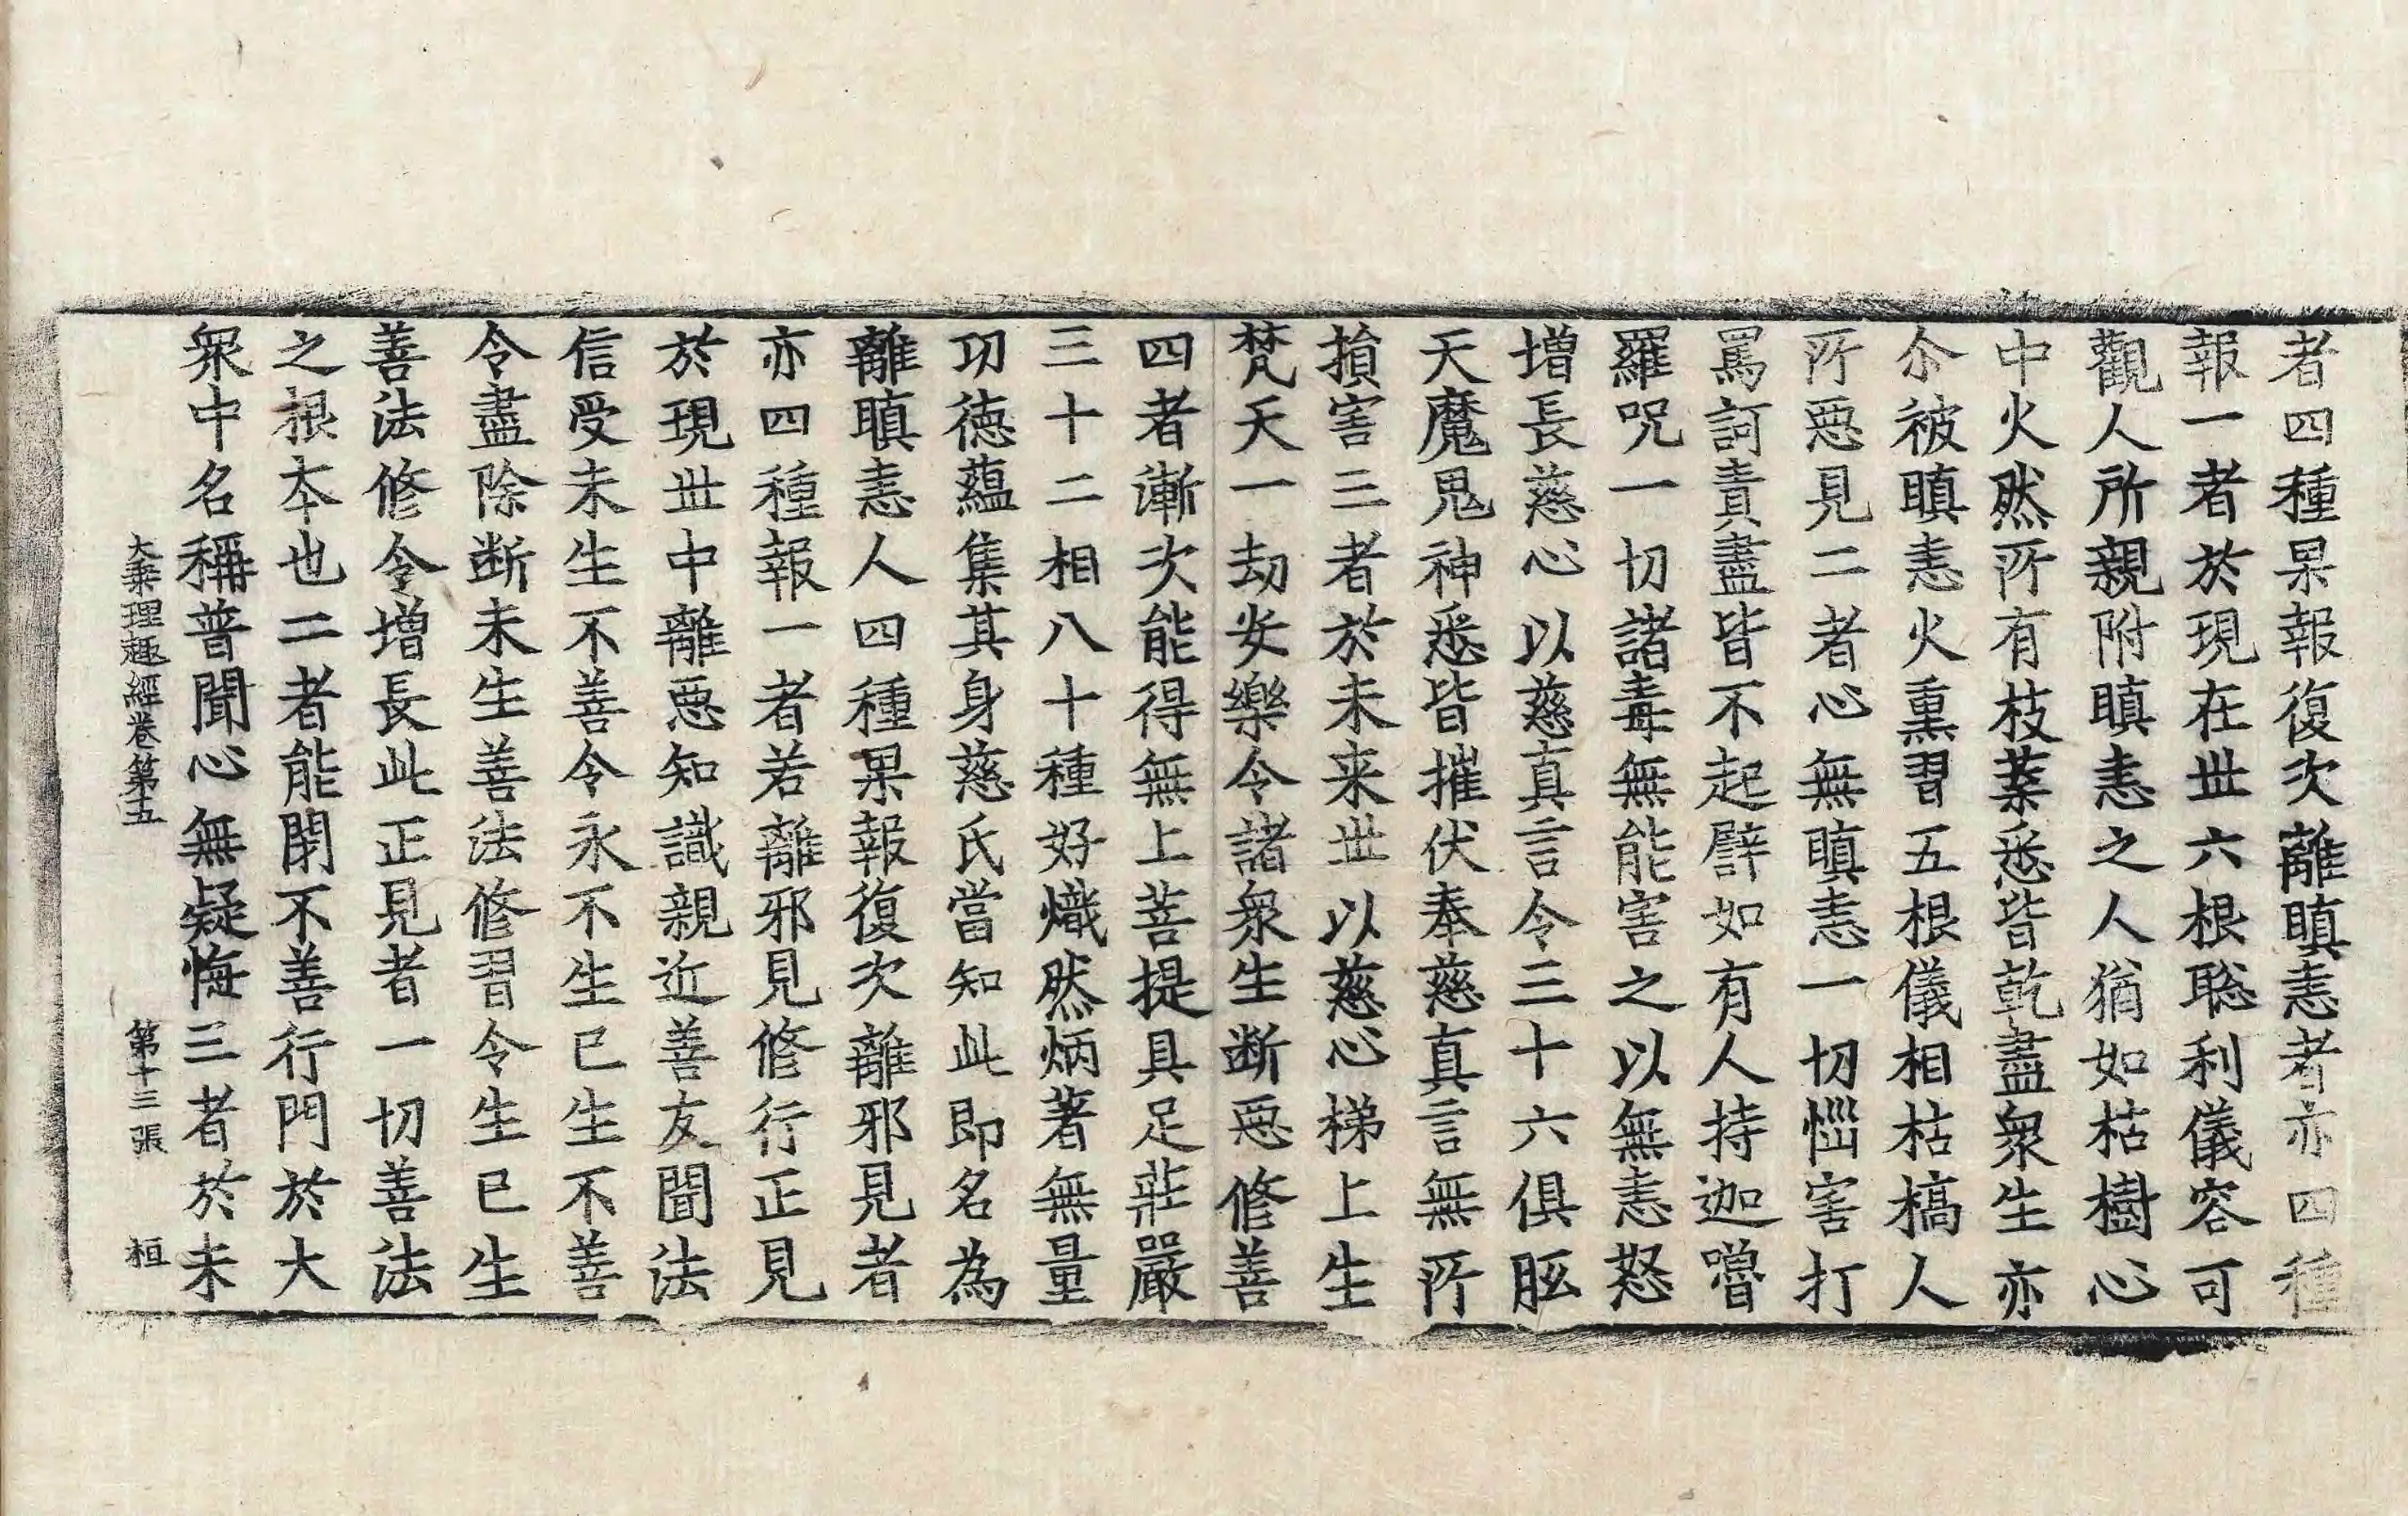 者四種果報復次離瞋恚者亦四種
報一者於現在世六根聡利儀容可
觀人所親附瞋恚之人猶如枯樹心
中火然所有枝葉悉皆乾盡衆生亦
尒被瞋恚火熏習五根儀相枯槁人
所惡見二者心無瞋恚一切惱害打
罵訶責盡皆不起譬如有人持迦嚕
羅呪一切諸毒無能害之以無恚怒
增長慈心以慈真言令三十六俱胝
天魔鬼神悉皆摧伏奉慈真言無所
損害三者於未来世以慈心梯上生
梵天一劫安樂令諸衆生断惡修善
四者漸次能得無上菩提具足莊嚴
三十二相八十種好熾然炳著無量
功德蘊集其身慈氏當知此即名為
離瞋恚人四種果報復次離邪見者
亦四種報一者若離邪見修行正見
於現世中離惡知識親近善友聞法
信受未生不善令永不生已生不善
令盡除断未生善法修習令生已生
善法修令增長此正見者一切善法
之根本也二者能閉不善行門於大
衆中名稱普聞心無疑悔三者於未
大乘理趣經卷第五 第十三張 桓